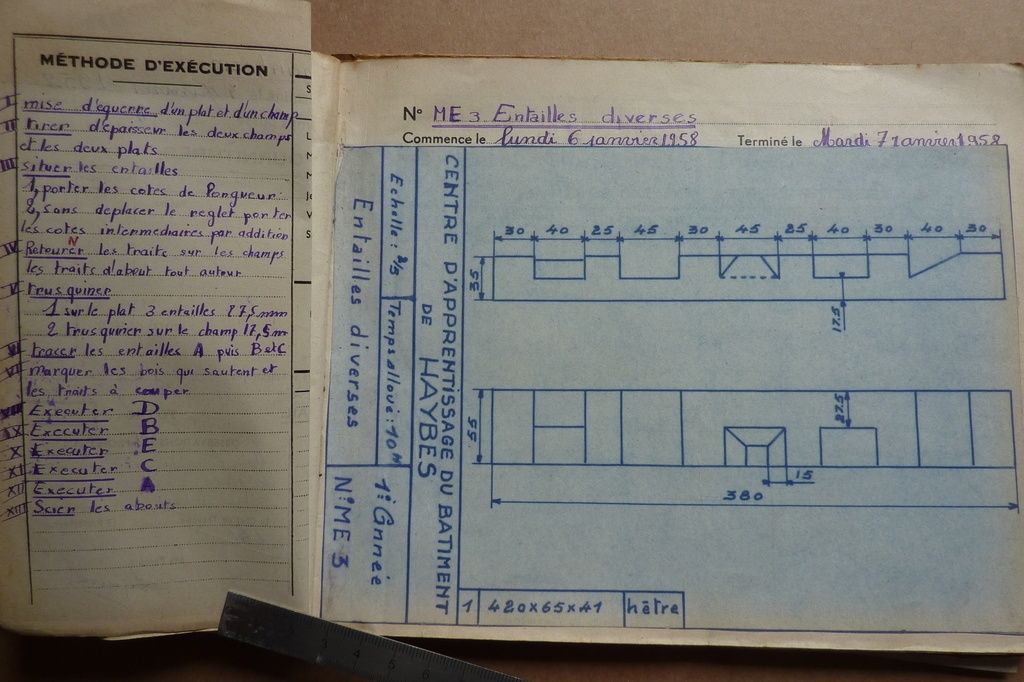 MÉTHODE D'EXÉCUTION
I mise d'equerre d'un plat et d'un champ
II tirer d'épaisseur les deux champs
et les deux plats
III situer les entailles
1, porter les cotes de longueur
2, sans deplacer le reglet porter
les cotes intermediaires par addition
N
IV Retourer les traits sur les champs
les traits d'about tout autour
V trusquiner
1 sur le plat 3 entailles 27,5 mm
2 trusquiner sur le champ 17,5 m
VI tracer les entailles A puis B et C
VII marquer les bois qui sautent et
les traits à couper
VIII Executer D
IX Executer B
X Executer E
XI Executer C
XII Executer A
XIII Scier les abouts
N° ME 3 Entailles diverses
Commencé le lundi 6 janvier 1958 Terminé le Mardi 7 janvier 1958
CENTRE D'APPRENTISSAGE DU BATIMENT
DE
HAYBES
Echelle: 2/5 Temps alloué: 10H 1e Année
Entailles diverses N° ME 3
30 40 25 45 30 45 25 40 30 40 30
35
17,5
55
27,5
15
380
1 420x65x41 hêtre
3 4 5 6